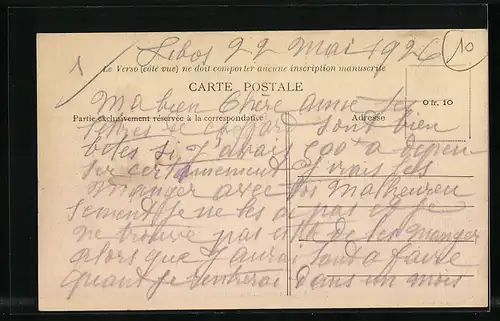 Libos 22 Mai 1926
10
Le Verso (côté vue) ne doit comporter aucune inscription manuscrite
CARTE POSTALE
Ma bien Chère amie les
Partie exclusivement réservée à la correspondance
Adresse
0 fr. 10
lettres se sont bien
betes si j'avais 500 f a depen
ser certainement j'irais les
manger avec toi Malheureu
sement je ne les ai pas et je
ne trouve pas utile de les manger
alors que j'aurai tout a faire
quand je rentrerai dans un mois